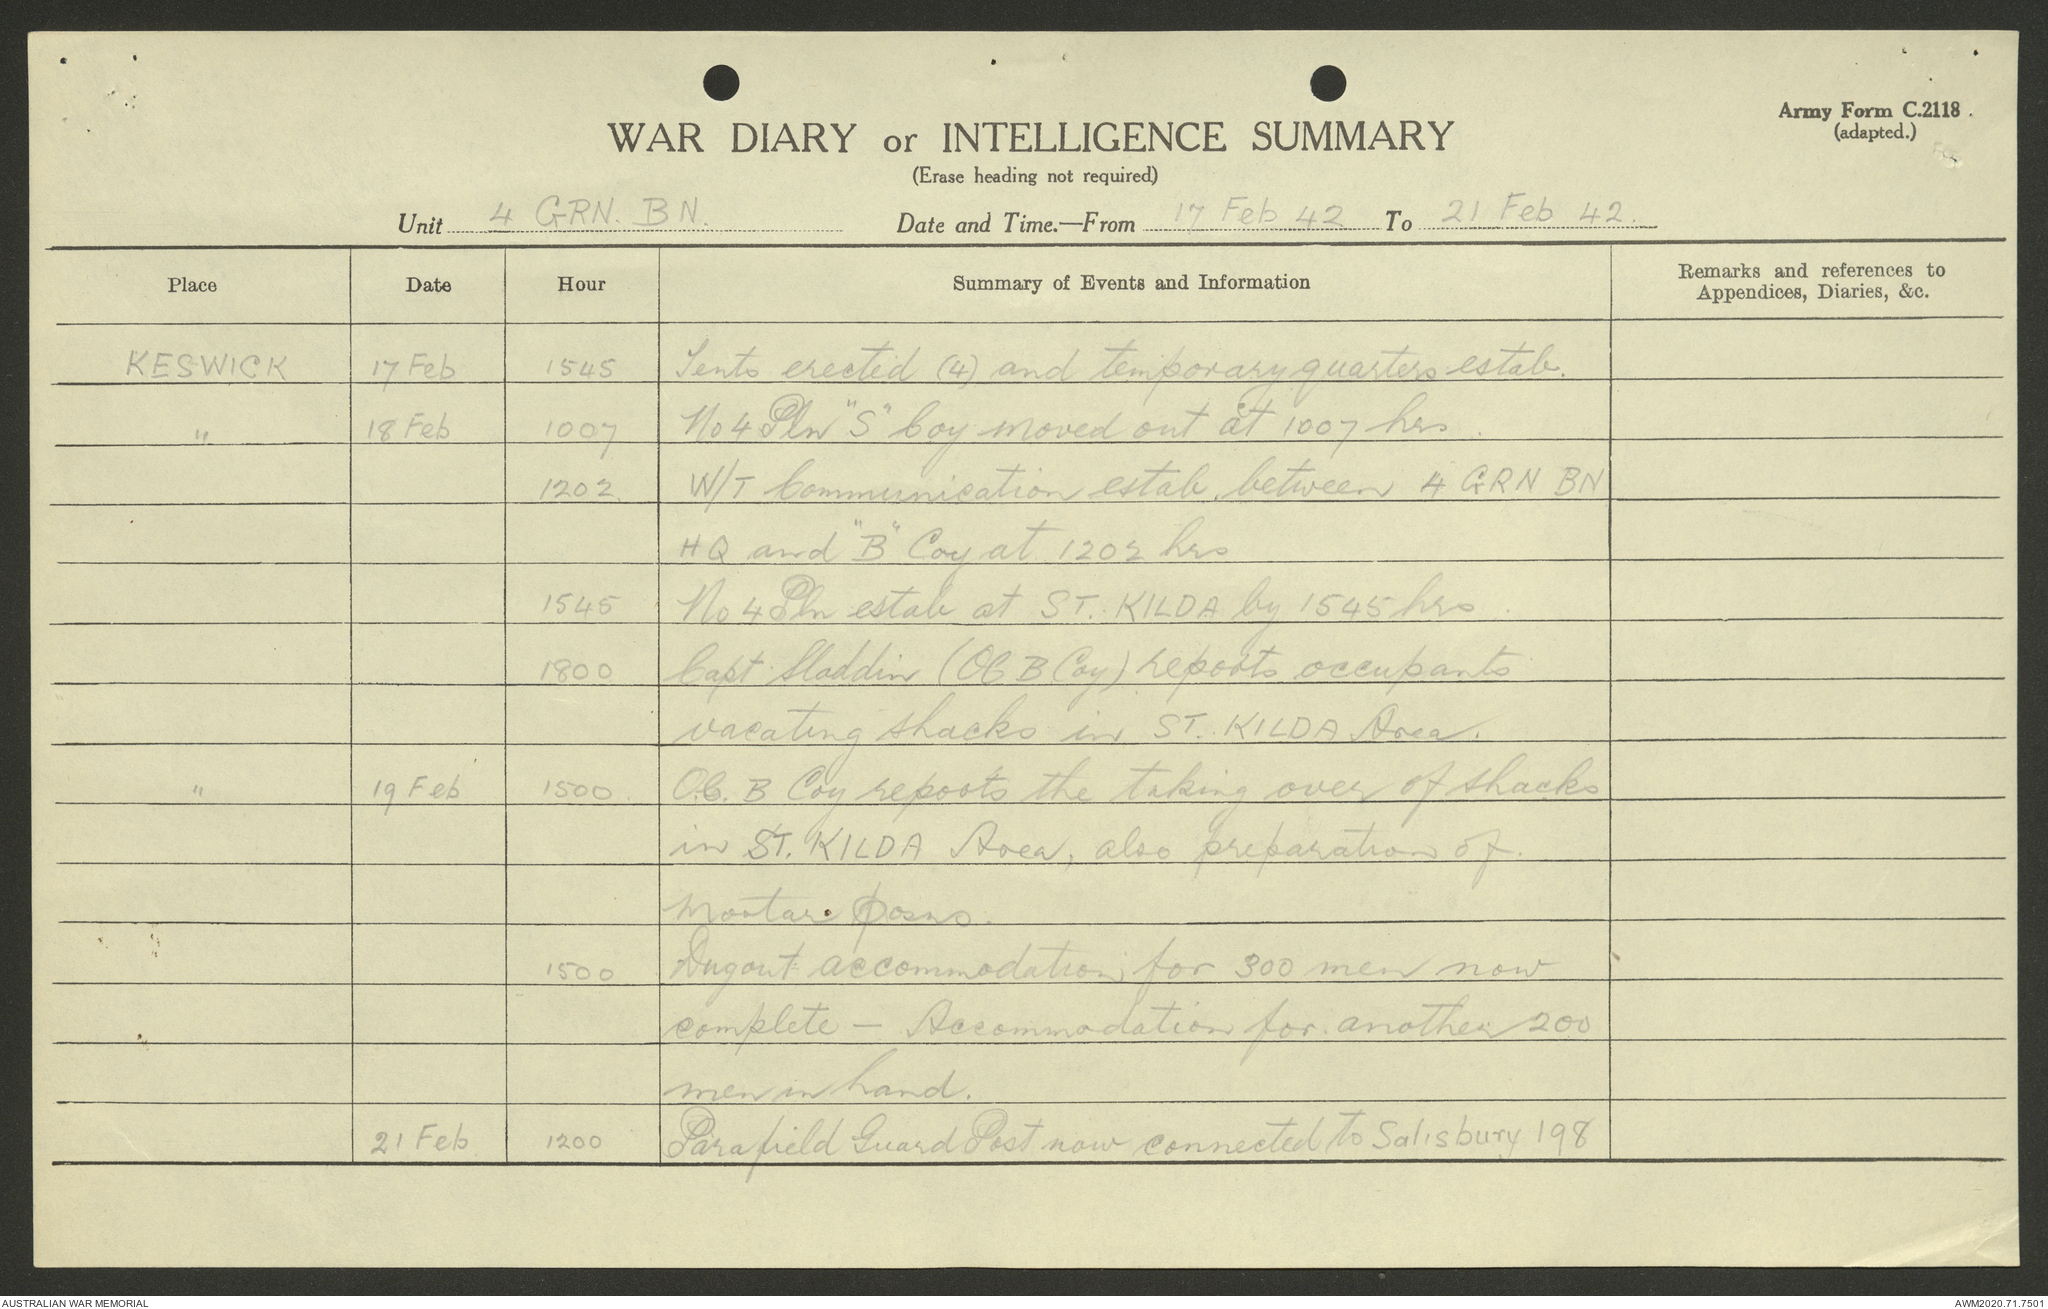 Army Form C.2118.
(adapted.)
WAR DIARY or INTELLIGENCE SUMMARY
(Erase heading not required)
Unit 4 GRN. BN. Date and Time.—From 17 Feb 42 To 21 Feb 42.
Place Date Hour Summary of Events and Information Remarks and references to Appendices, Diaries, &c.
KESWICK 17 Feb 1545 Tents erected (4) and temporary quarters estab.
" 18 Feb 1007 No 4 Pln "S" Coy moved out at 1007 hrs.
1202 W/T Communication estab. between 4 GRN BN
HQ and "B" Coy at 1202 hrs
1545 No 4 Pln estab at ST. KILDA by 1545 hrs.
1800 Capt Sladdin (OC B Coy) reports occupants
vacating shacks in ST. KILDA Area.
" 19 Feb 1500 O.C. B Coy reports the taking over of shacks
in ST. KILDA Area, also preparation of
Mortar posns.
1500 Dugout accommodation for 300 men now
complete — Accommodation for another 200
men in hand.
21 Feb 1200 Parafield Guard Post now connected to Salisbury 198
AUSTRALIAN WAR MEMORIAL AWM2020.71.7501